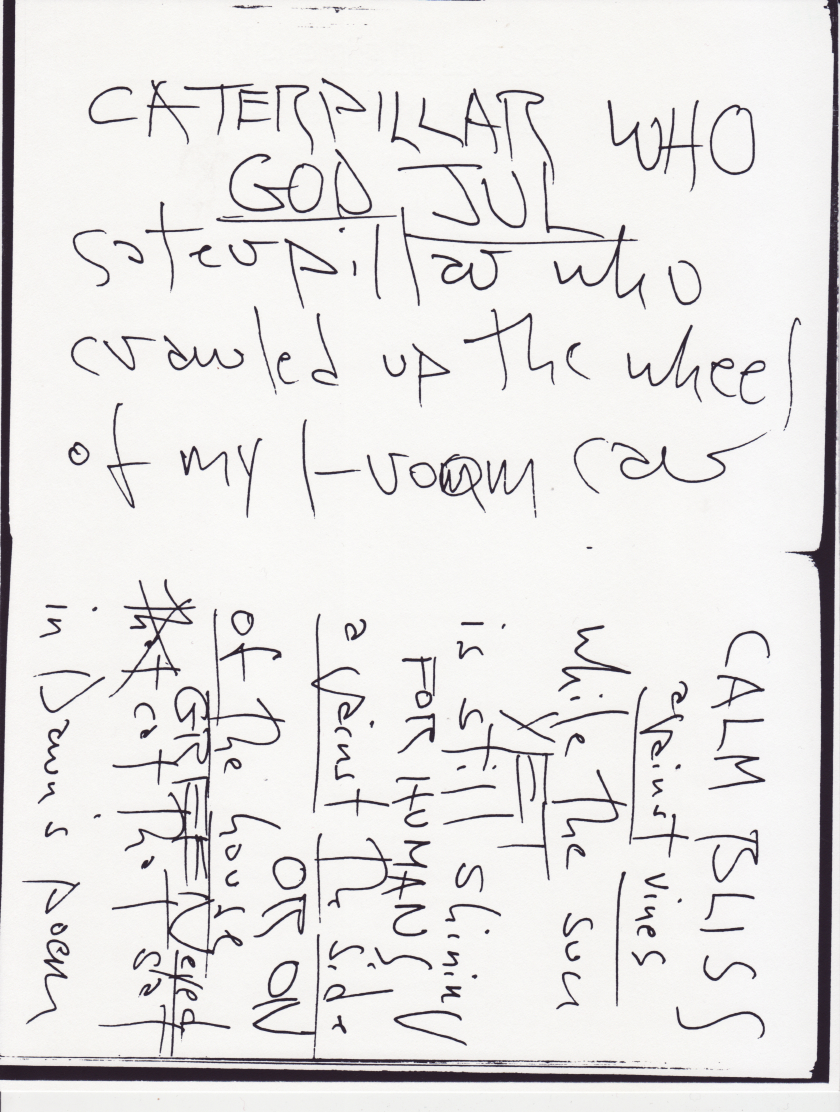 CATERPILLAR WHO
GOD JUL
saterpillar who
crawled up the wheel
of my 1-room car
CALM BLISS
against vines
while the sun
YET
is still shining
FOR HUMANS
against the side
OR ON
of the house
GREEN eyed
cat that sat
in Dawn's poem